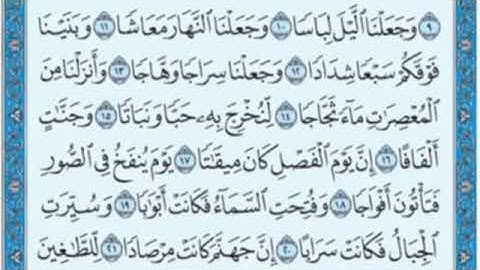 ٩ وَجَعَلْنَا ٱلَّيْلَ لِبَاسًا ١٠ وَجَعَلْنَا ٱلنَّهَارَ مَعَاشًا ١١ وَبَنَيْنَا
فَوْقَكُمْ سَبْعًا شِدَادًا ١٢ وَجَعَلْنَا سِرَاجًا وَهَّاجًا ١٣ وَأَنزَلْنَا مِنَ
ٱلْمُعْصِرَٰتِ مَآءً ثَجَّاجًا ١٤ لِّنُخْرِجَ بِهِۦ حَبًّا وَنَبَاتًا ١٥ وَجَنَّٰتٍ
أَلْفَافًا ١٦ إِنَّ يَوْمَ ٱلْفَصْلِ كَانَ مِيقَٰتًا ١٧ يَوْمَ يُنفَخُ فِى ٱلصُّورِ
فَتَأْتُونَ أَفْوَاجًا ١٨ وَفُتِحَتِ ٱلسَّمَآءُ فَكَانَتْ أَبْوَٰبًا ١٩ وَسُيِّرَتِ
ٱلْجِبَالُ فَكَانَتْ سَرَابًا ٢٠ إِنَّ جَهَنَّمَ كَانَتْ مِرْصَادًا ٢١ لِّلطَّٰغِينَ